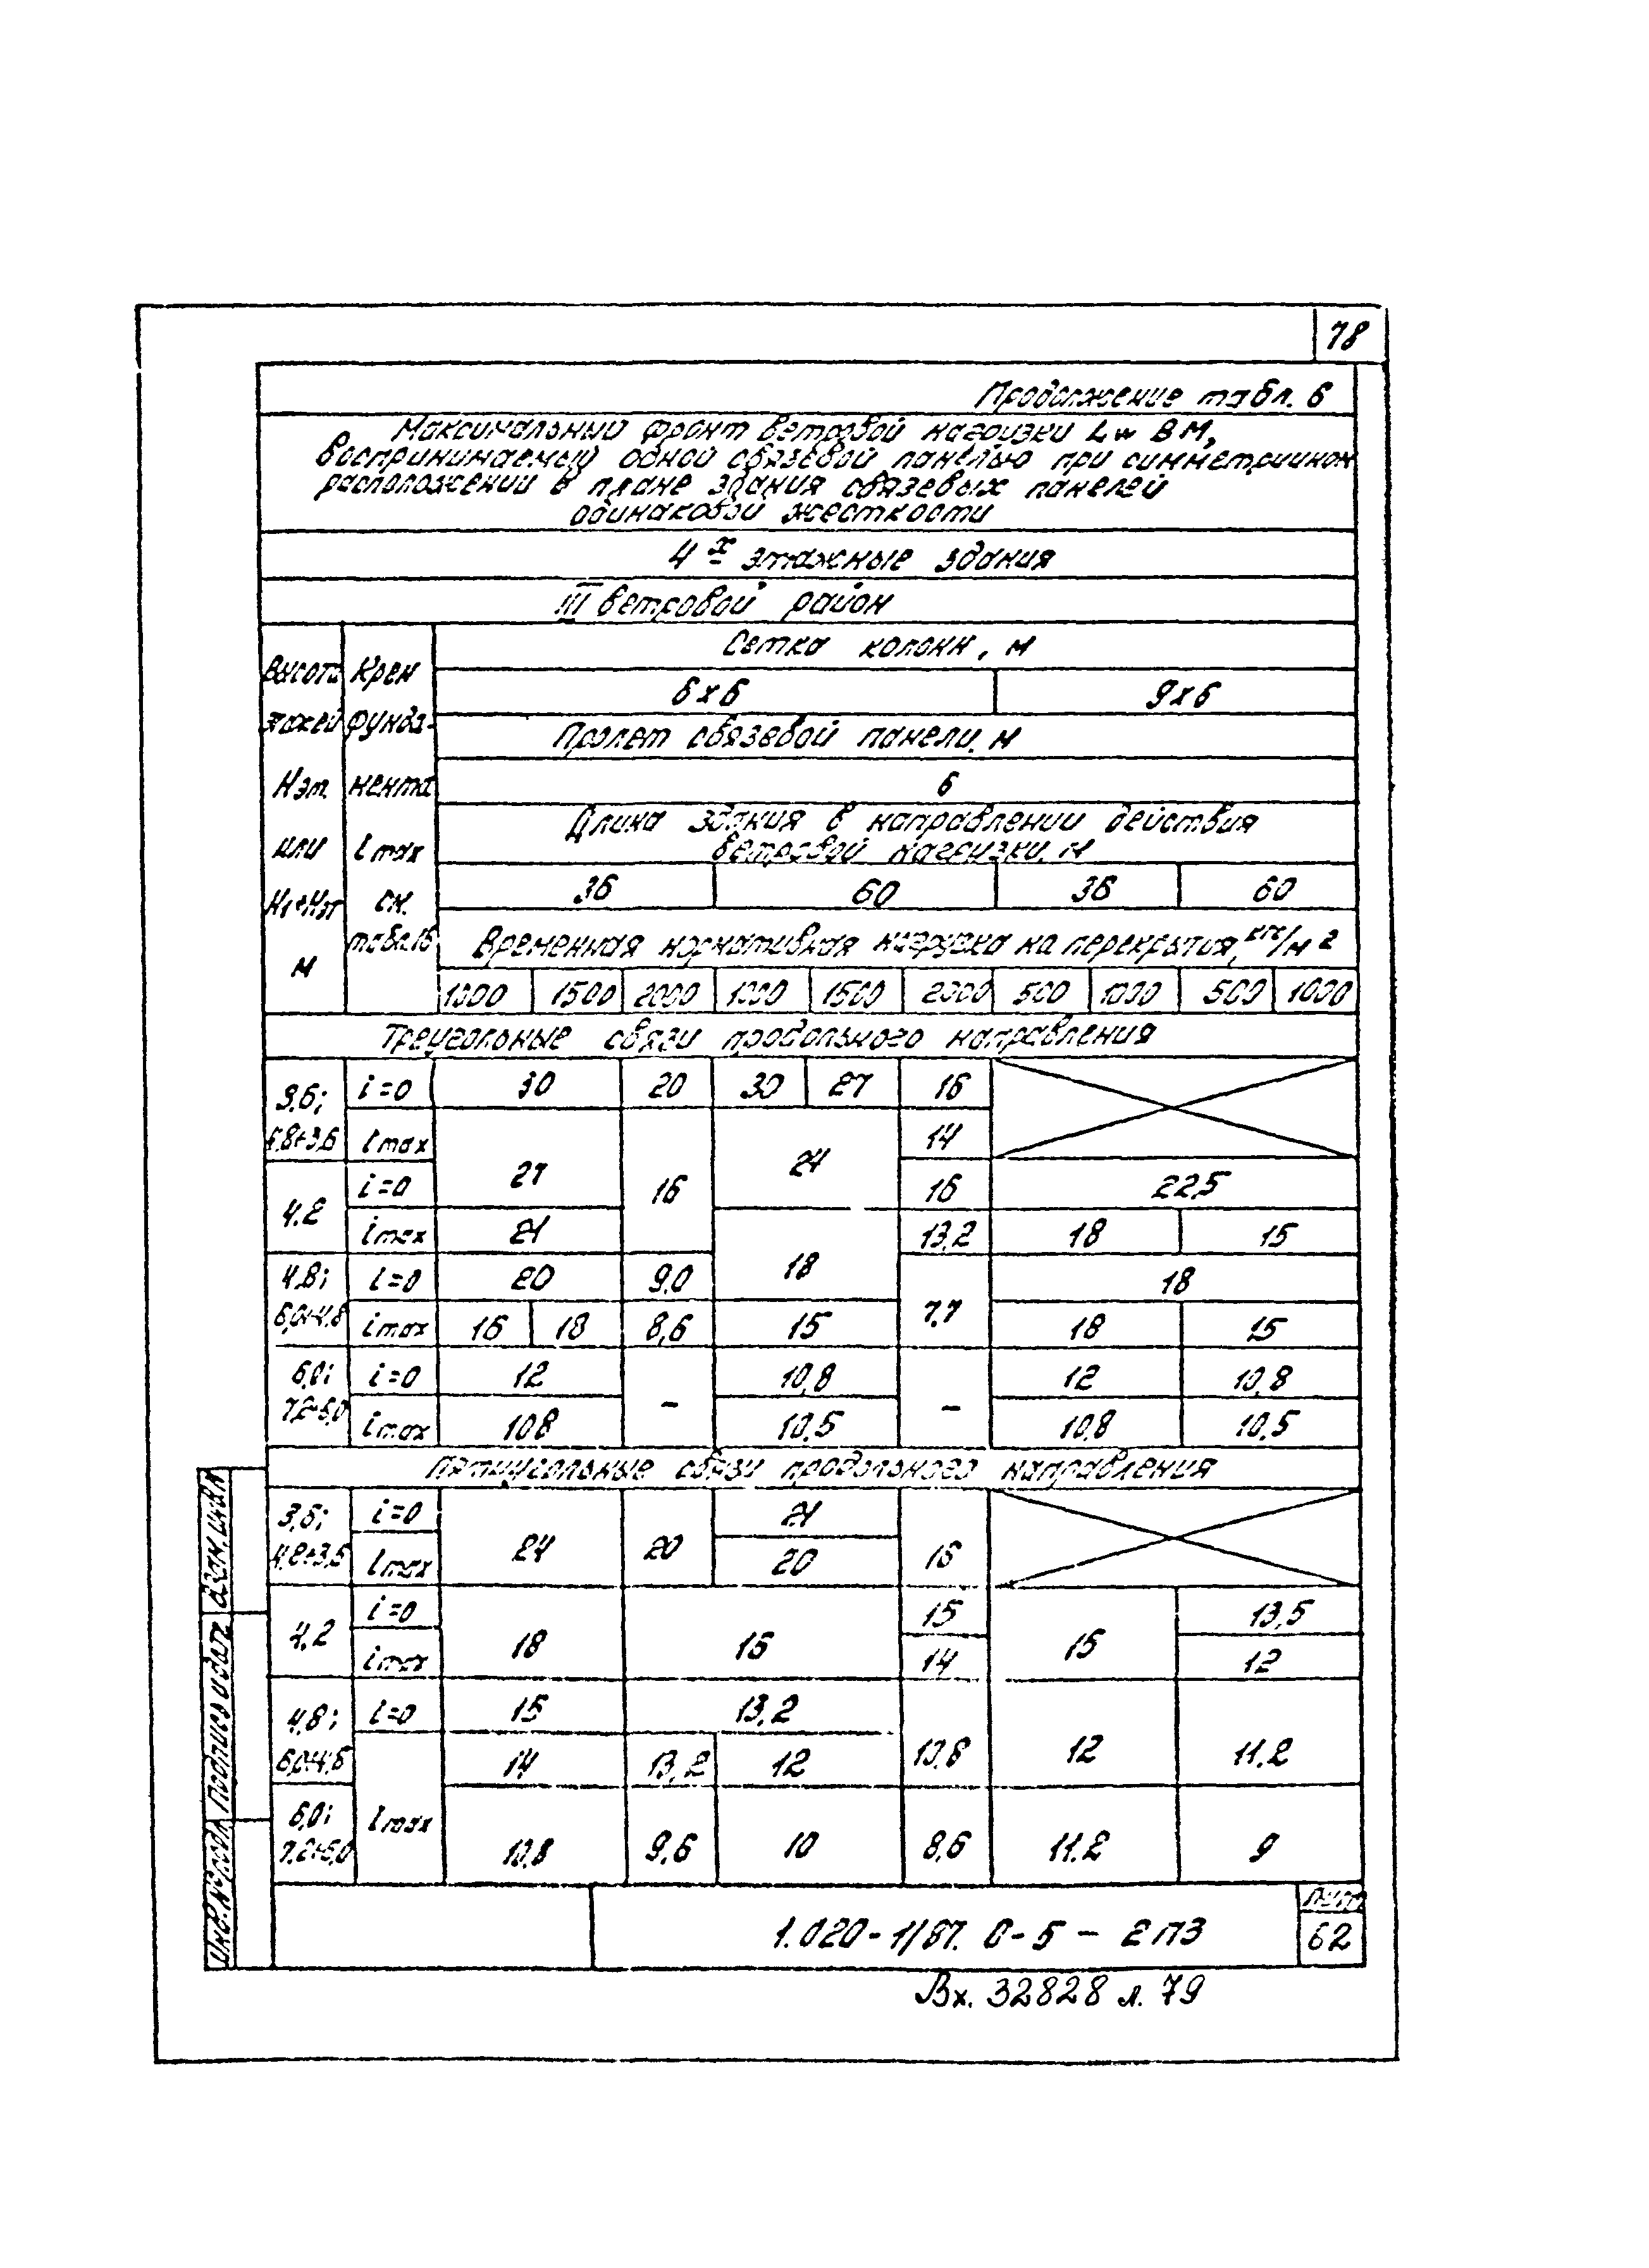 78
Продолжение табл. 6
Максимальный фронт ветровой нагрузки Lw в м,
воспринимаемый одной связевой панелью при симметричном
расположении в плане здания связевых панелей
одинаковой жесткости
4х этажные здания
III ветровой район
Высота этажей Нэт. или Н1+Нэт м
Крен фундамента i max см. табл.16
Сетка колонн, м
6х6 9х6
Пролет связевой панели, м
6
Длина здания в направлении действия
ветровой нагрузки, м
36 60 36 60
Временная нормативная нагрузка на перекрытия, кгс/м2
1000 1500 2000 1000 1500 2000 500 1000 500 1000
Треугольные связи продольного направления
3,6; 4,8+3,6 i=0 30 20 30 27 16
imax 27 16 24 14
4.2 i=0 16 22,5
imax 21 18 13,2 18 15
4,8; 6,0+4,8 i=0 20 9,0 7,7 18
imax 16 18 8,6 15 18 15
6,0; 7,2+6,0 i=0 12 - 10,8 - 12 10,8
imax 10,8 10,5 10,8 10,5
Пятиугольные связи продольного направления
3,6; 4,8+3,6 i=0 24 20 21 16
imax 20
4,2 i=0 18 16 15 15 13,5
imax 14 12
4,8; 6,0+4,8 i=0 15 13,2 12 11.2
imax 14 13,2 12
6,0; 7,2+6,0 10,8 9,6 10 8,6 11.2 9
Взам. инв.№
Подпись и дата
Инв.№ подл.
1.020-1/87. 0-5 - 2 ПЗ
Лист
62
Вх. 32828 л. 79